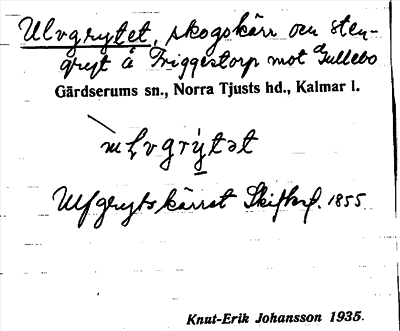 Ulvgrytet, skogskärr och sten-
gryt å Friggestorp mot Gullebo
Gärdserums sn., Norra Tjusts hd., Kalmar l.
Ulfgrytskärret Skifteskf. 1855
Knut-Erik Johansson 1935.